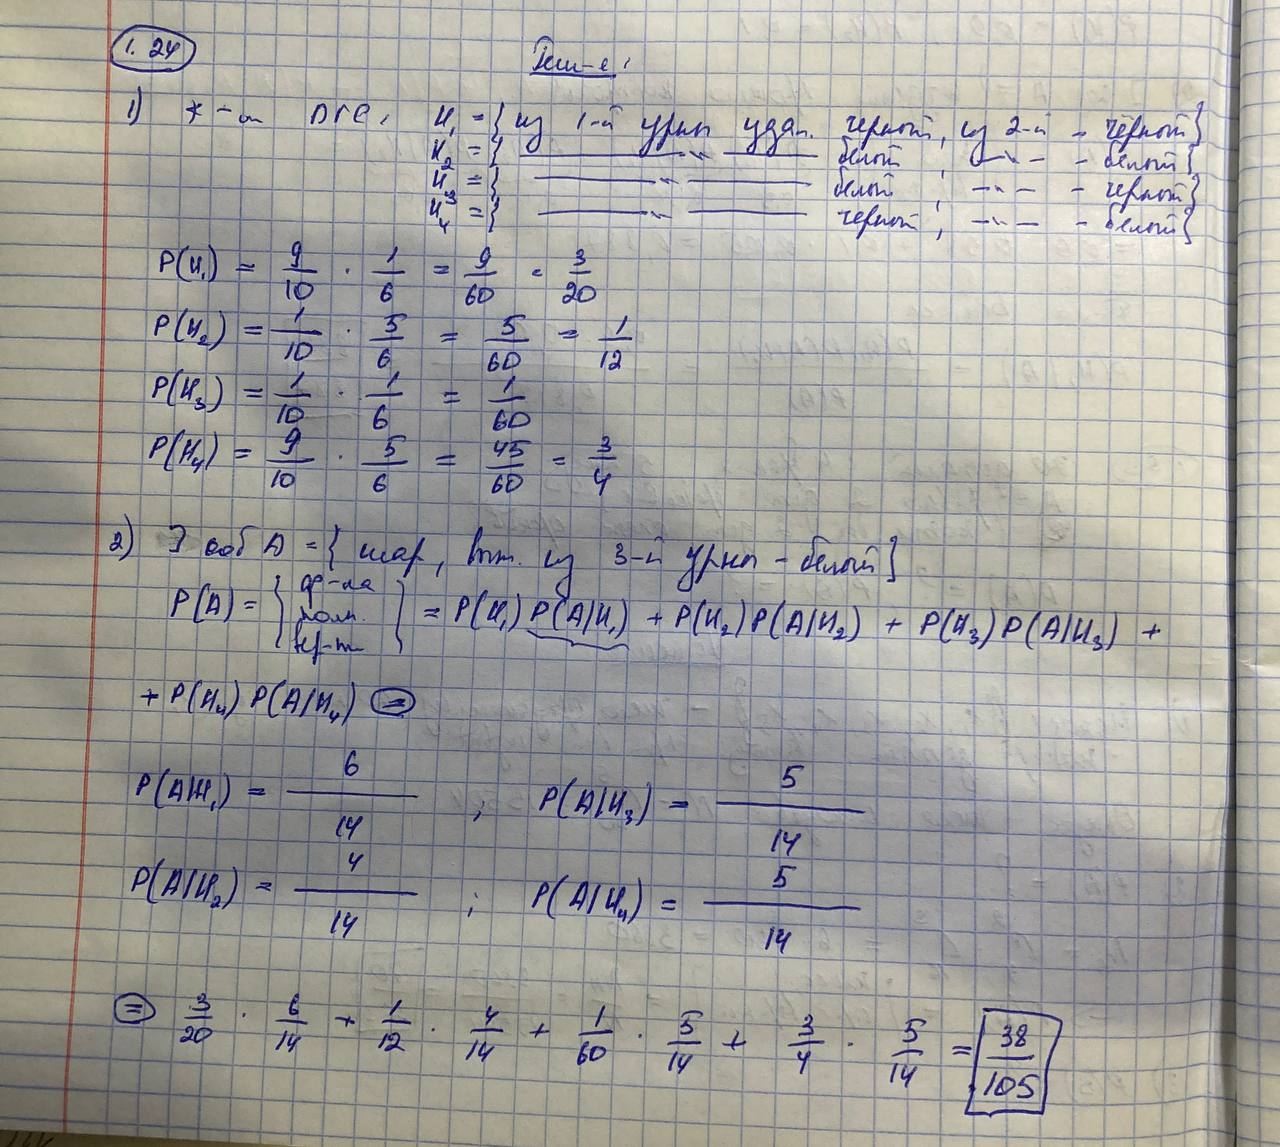 1. 24
Реш-е:
1) ПГС, H₁ = { из 1-й урны удал. черный, из 2-й - чёрный }
H₂ = { —〃— белый, —〃— - белый }
H₃ = { —〃— белый, —〃— - черный }
H₄ = { —〃— черный, —〃— - белый }
P(H₁) = 9/10 · 1/6 = 9/60 = 3/20
P(H₂) = 1/10 · 5/6 = 5/60 = 1/12
P(H₃) = 1/10 · 1/6 = 1/60
P(H₄) = 9/10 · 5/6 = 45/60 = 3/4
2) Э соб A = { шар, выт. из 3-й урны - белый }
P(A) = { ф-ла полн. вер-ти } = P(H₁) P(A|H₁) + P(H₂) P(A|H₂) + P(H₃) P(A|H₃) +
+ P(H₄) P(A|H₄) =
P(A|H₁) = 6/14 ; P(A|H₃) = 5/14
P(A|H₂) = 4/14 ; P(A|H₄) = 5/14
= 3/20 · 6/14 + 1/12 · 4/14 + 1/60 · 5/14 + 3/4 · 5/14 = 38/105